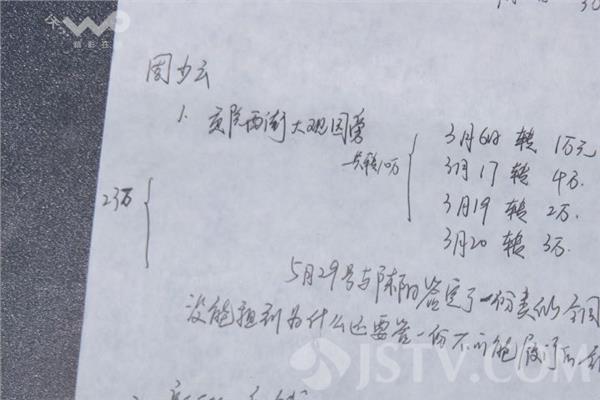 周少云
1. 贡院西街大观园旁
共转10万
23万
3月6日 转 1万元
3月17 转 4万.
3月19 转 2万.
3月20 转 3万.
5月29号与陈阳签定了一份类似合同
没能想到为什么还要签一份不可能履行的
JSTV.COM